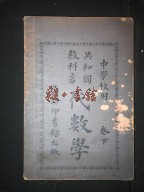 中學校用
共和國
教科書
代數學
卷下
印書館出版